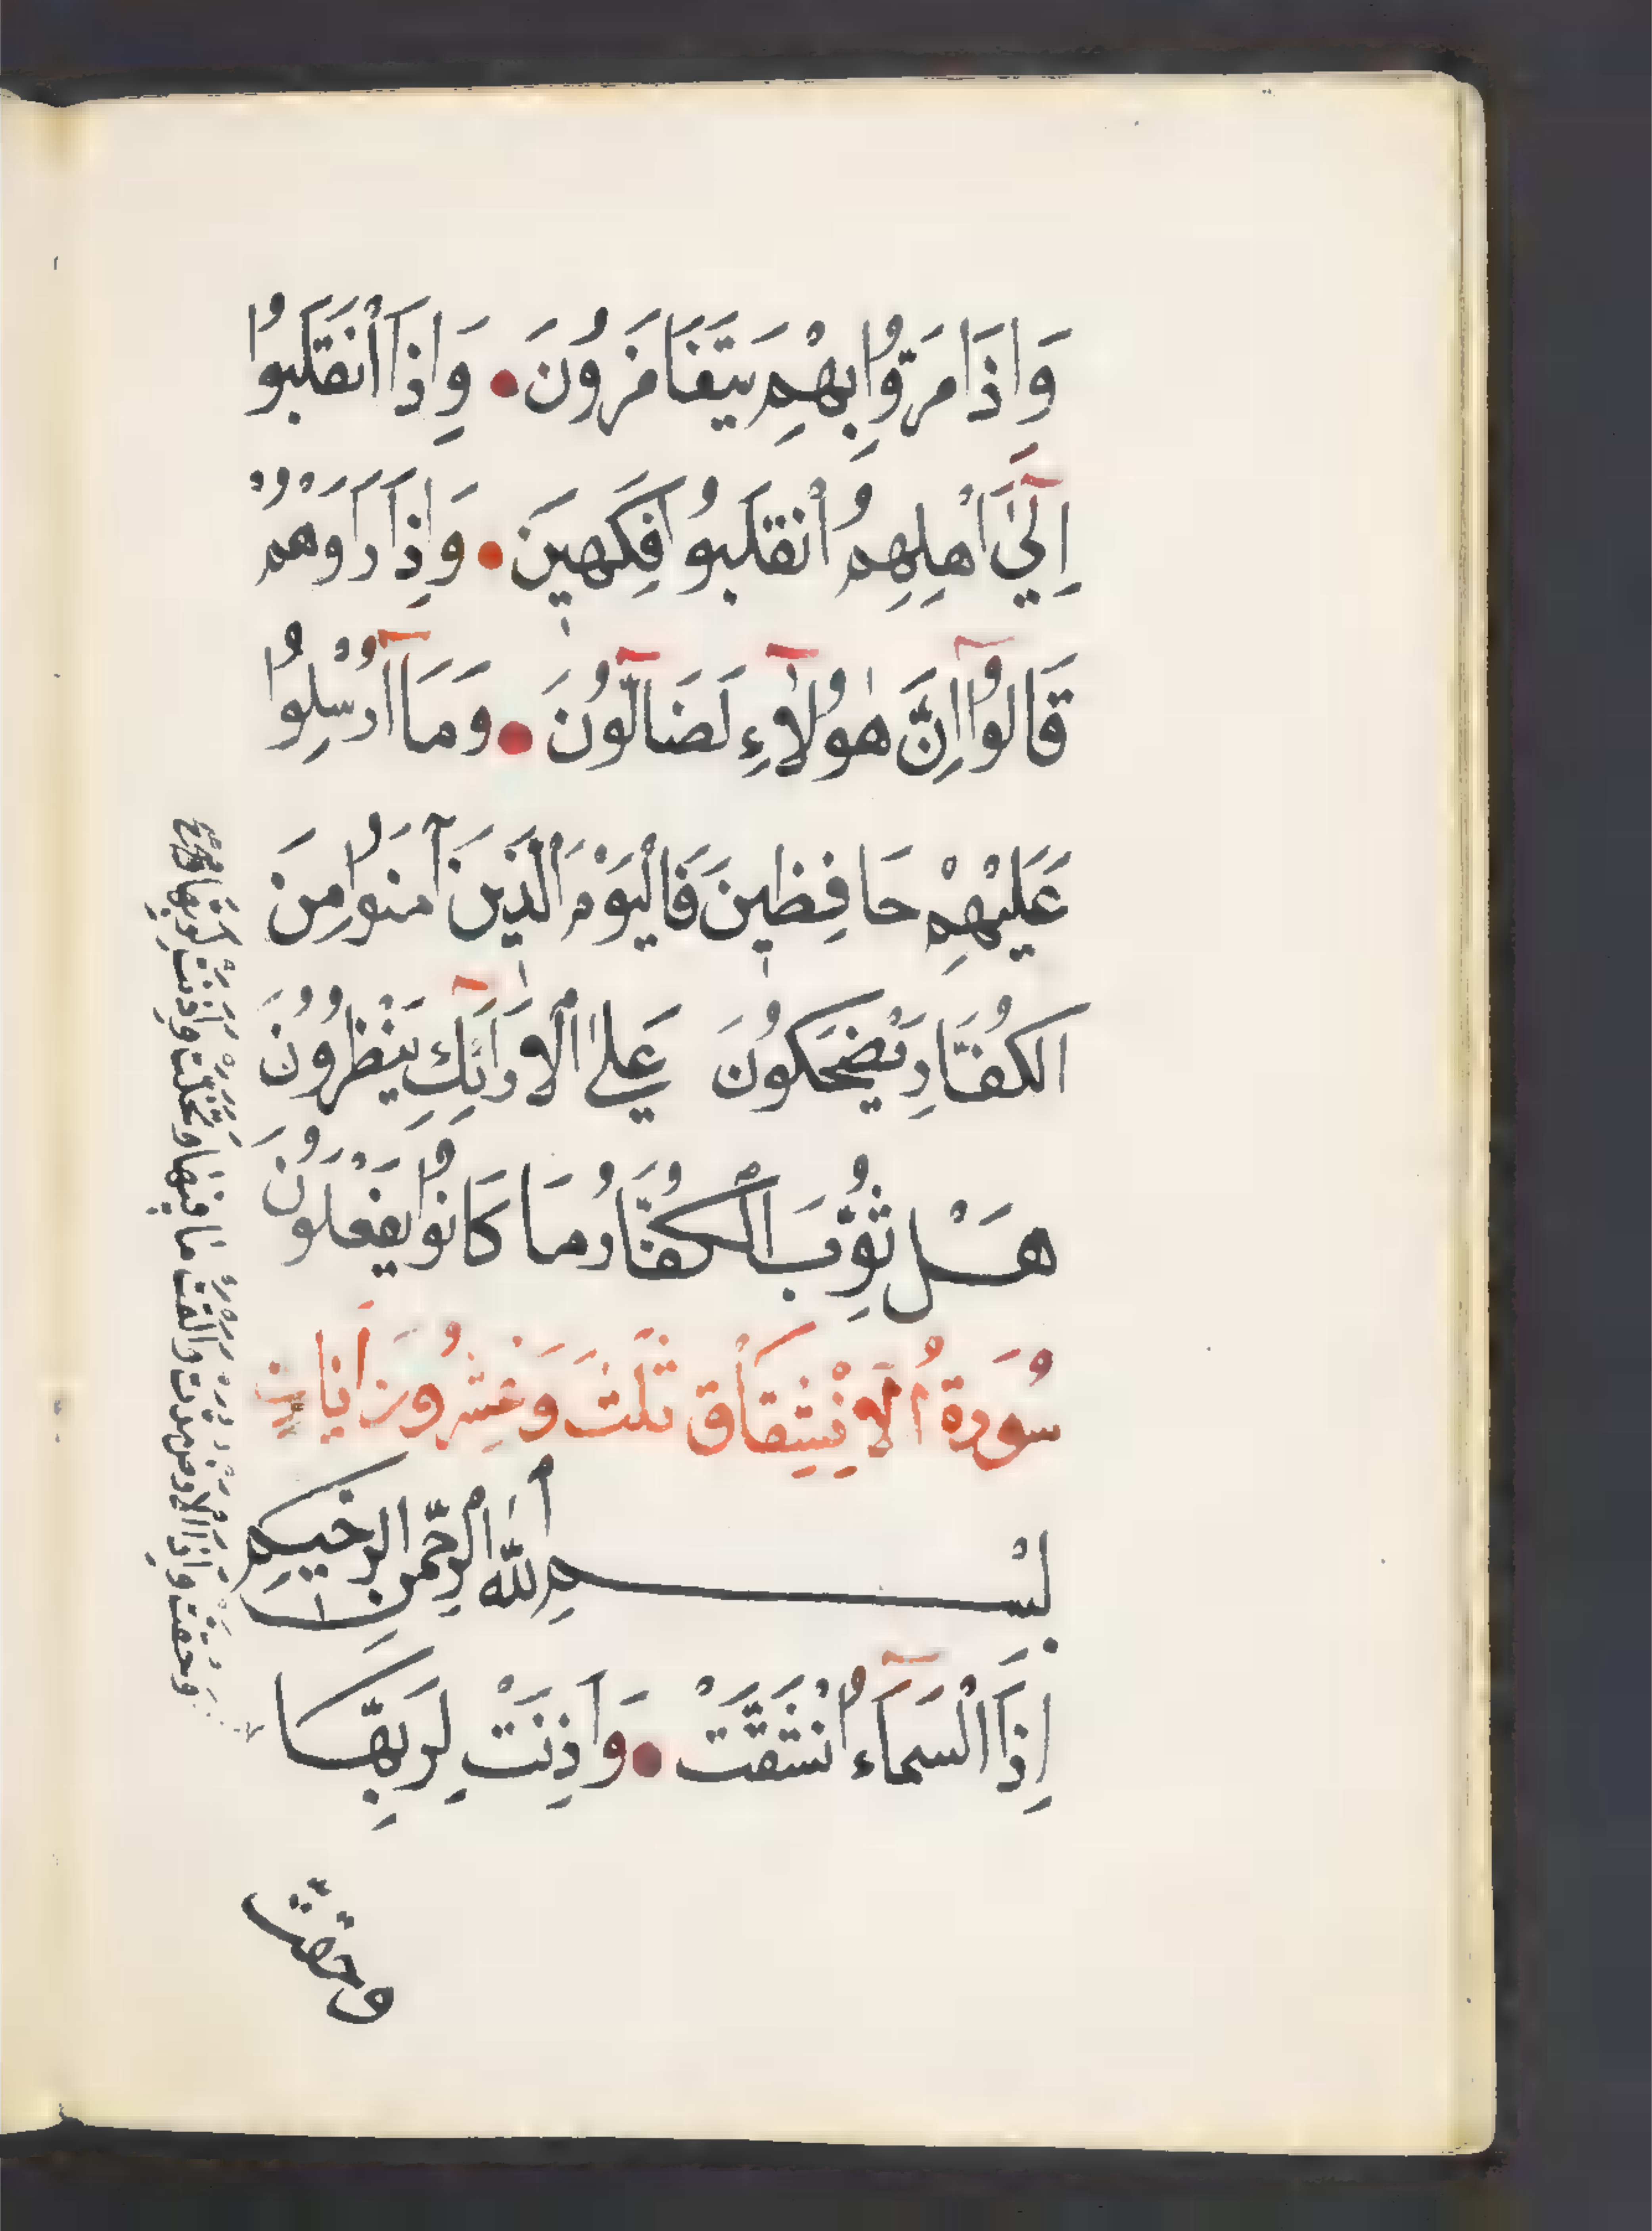 وَاِذَا مَرُّوا بِهِمْ يَتَغَامَزُونَ • وَاِذَا اَنْقَلَبُوا
اِلَىٰٓ اَهْلِهِمُ اَنْقَلَبُوا فَكِهِينَ • وَاِذَا رَاَوْهُمْ
قَالُوٓا اِنَّ هٰؤُلَآءِ لَضَآلُّونَ • وَمَآ اُرْسِلُوا
عَلَيْهِمْ حَافِظِينَ فَالْيَوْمَ الَّذِينَ آمَنُوا مِنَ
الكُفَّارِ يَضْحَكُونَ عَلَى الْاَرَآئِكِ يَنْظُرُونَ
هَلْ ثُوِّبَ الْكُفَّارُ مَا كَانُوا يَفْعَلُونَ
سُورَةُ الْاِنْشِقَاق ثَلَثَ وَعِشْرُونَ اٰيَات
بِسْمِ اللّٰهِ الرَّحْمٰنِ الرَّحِيمِ
اِذَا السَّمَآءُ انْشَقَّتْ • وَاَذِنَتْ لِرَبِّهَا
وحقت
وَحُقَّتْ وَاِذَا الْاَرْضُ مُدَّتْ وَاَلْقَتْ مَا فِيهَا وَتَخَلَّتْ وَاَذِنَتْ لِرَبِّهَا